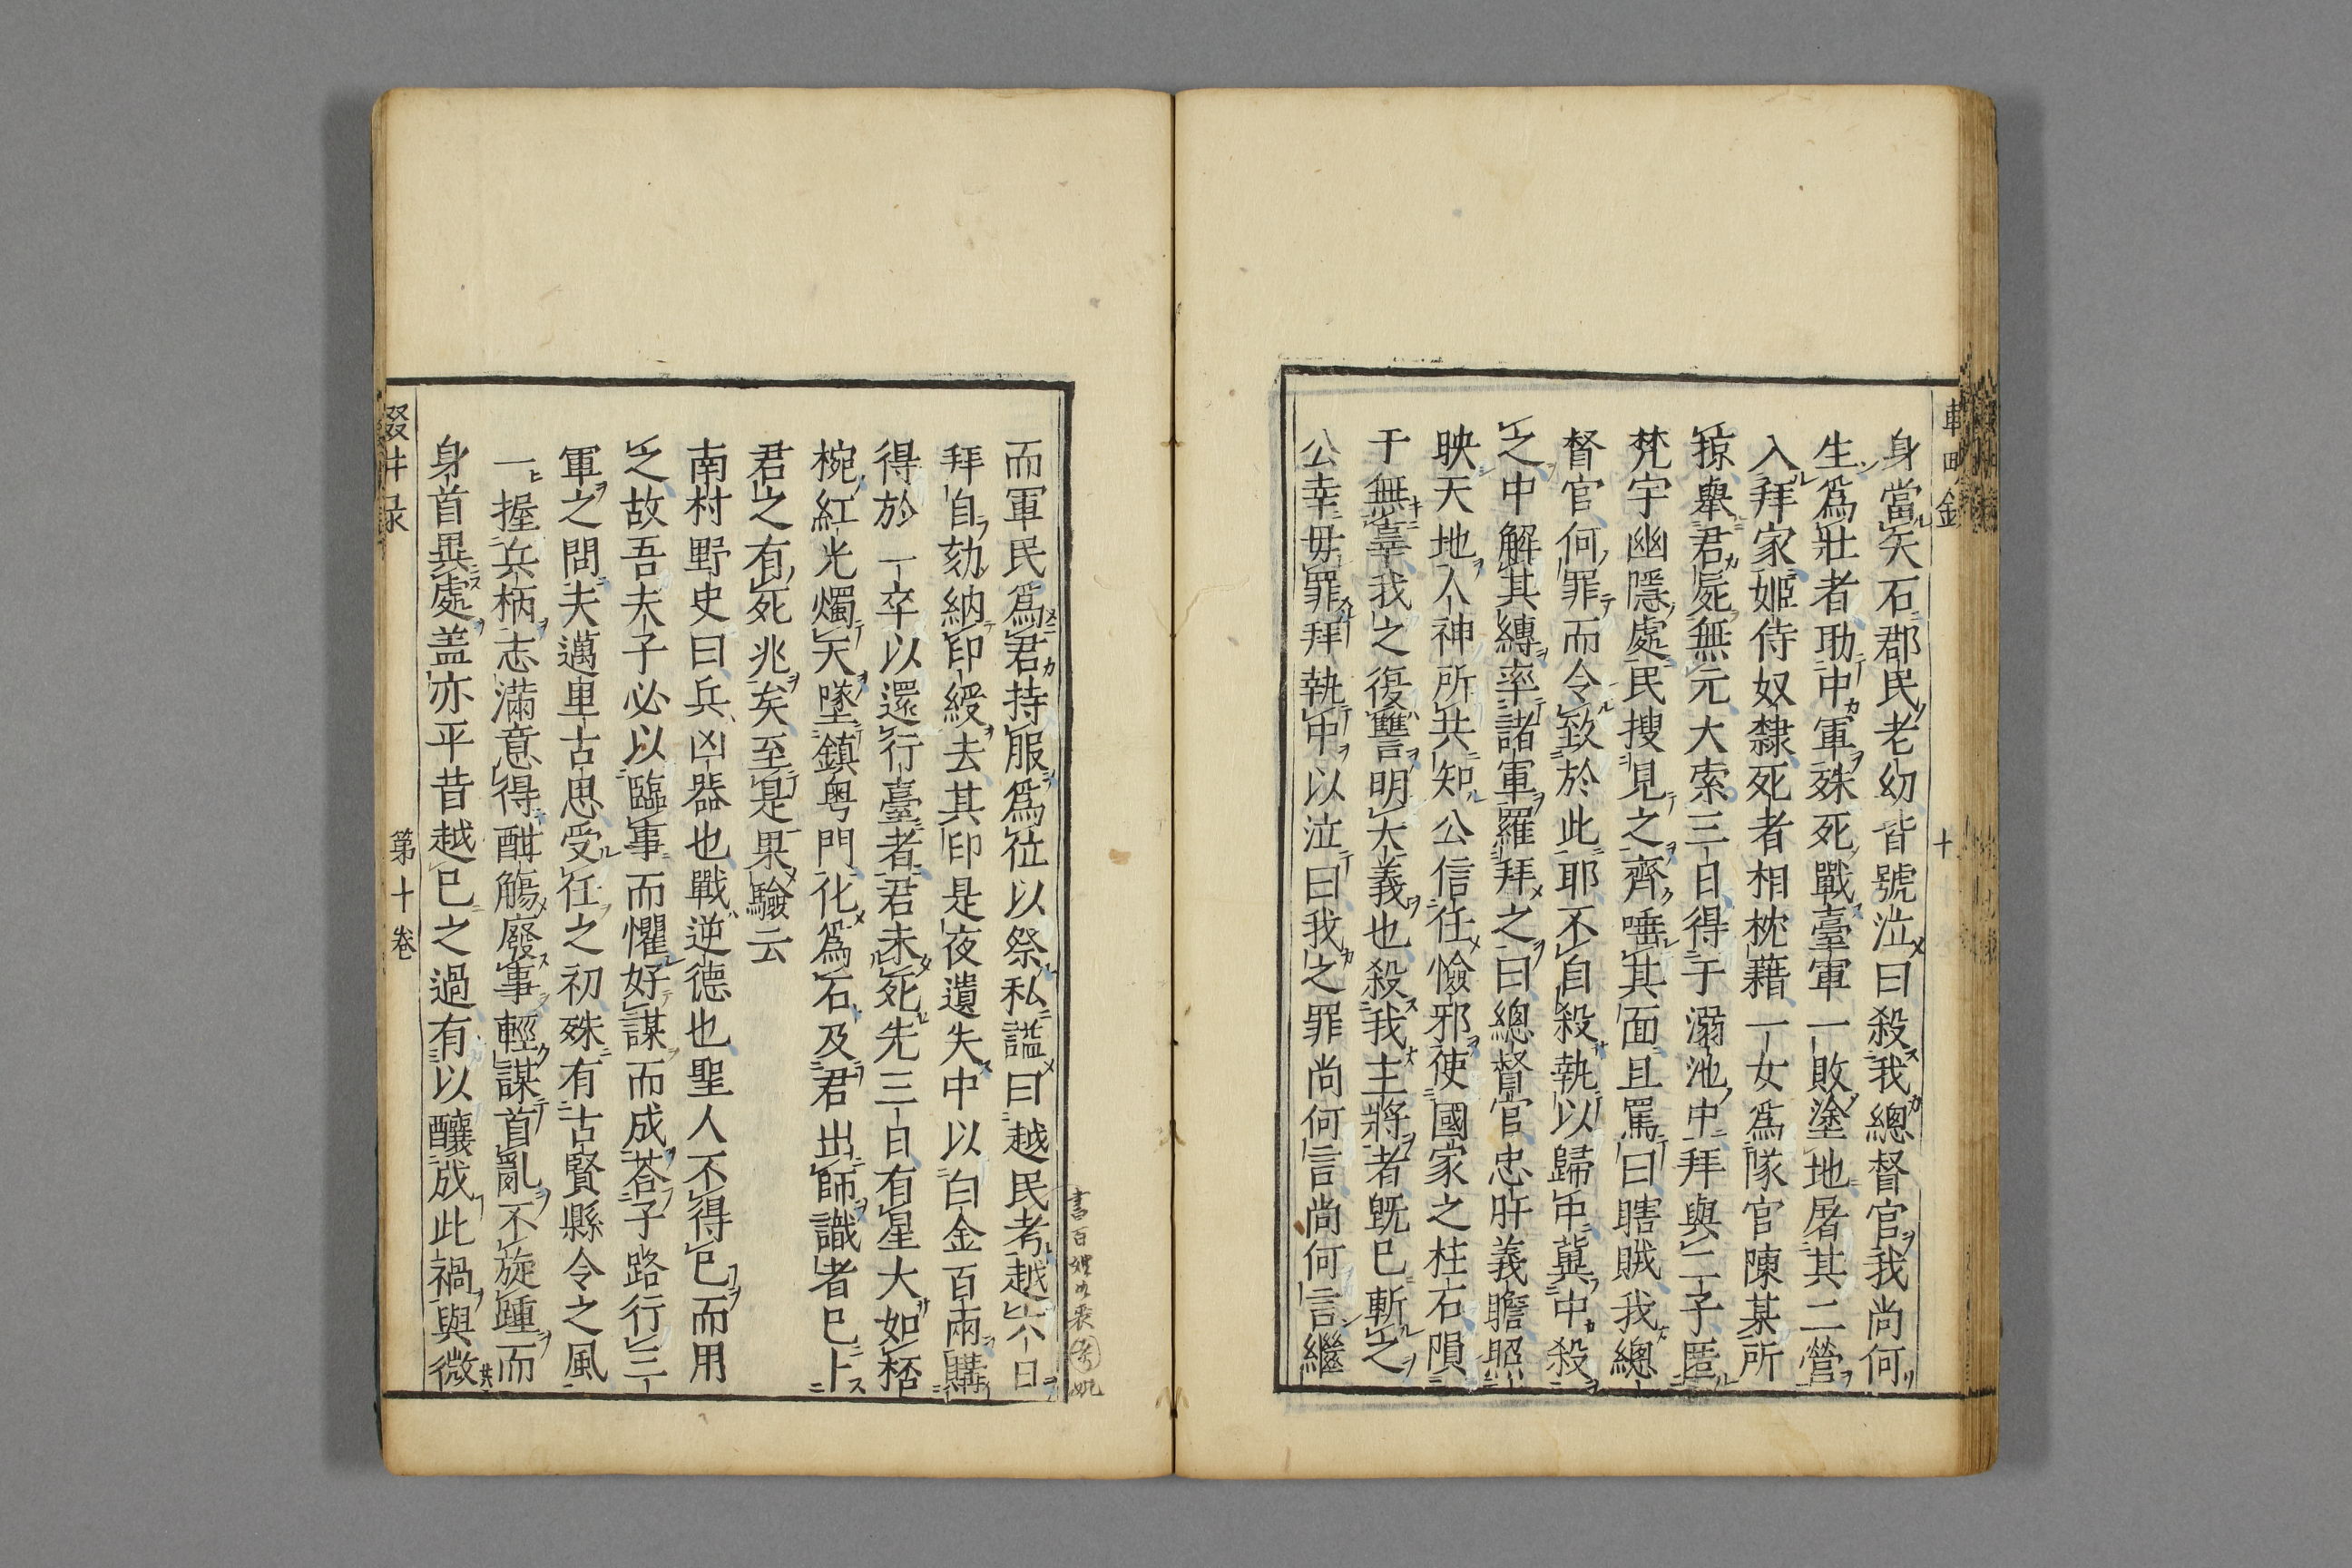 身當矢石郡民老幼皆號泣曰殺我總督官我尚何
生爲壯者助中軍殊死戰臺軍一敗塗地屠其二營
入拜家姬侍奴隸死者相枕藉一女爲隊官陳某所
掠舉君屍無元大索三日得于溺池中拜與二子匿
梵宇幽隱處民搜見之齊唾其面且罵曰瞎賊我總
督官何罪而令致於此耶不自殺執以歸中冀中殺
之中解其縛率諸軍羅拜之曰總督官忠肝義膽照
映天地人神所共知公信任憸邪使國家之柱石隕
于無辜我之復讐明大義也殺我主將者旣已斬之
公幸毋罪拜執中以泣曰我之罪尚何言尚何言繼
十
而軍民爲君持服爲位以祭私謚曰越民考越六日
拜自劾納印綬去其印是夜遺失中以白金百兩購
得於一卒以還行臺者君未死先三日有星大如桮
椀紅光燭天墜鎮粤門化爲石及君出師識者已卜
君之有死兆矣至是果驗云
南村野史曰兵凶器也戰逆德也聖人不得已而用
之故吾夫子必以臨事而懼好謀而成荅子路行三
軍之問夫邁里古思受任之初殊有古賢縣令之風
一握兵柄志滿意得酣觴廢事輕謀首亂不旋踵而
身首異處盖亦平昔越已之過有以釀成此禍與微
第十卷